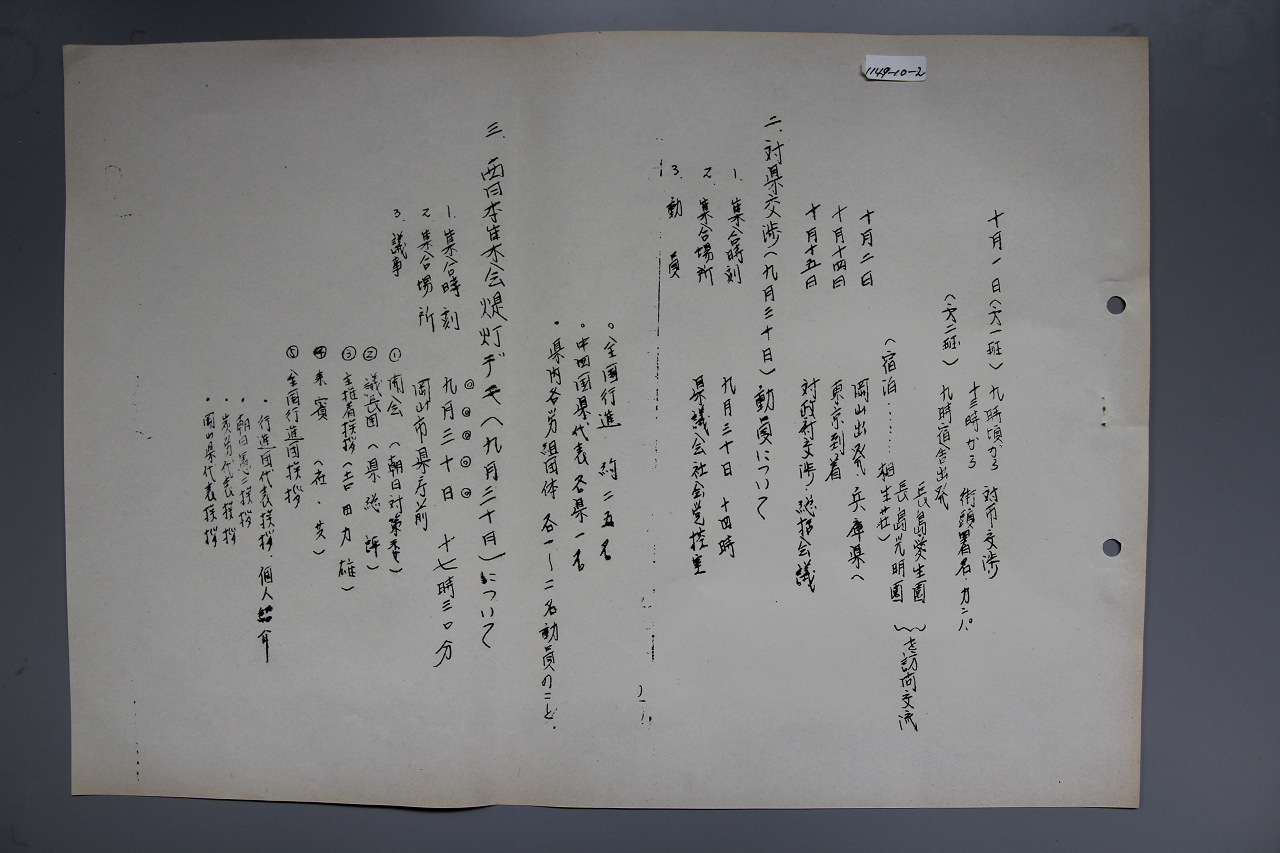 1149-10-2
十月一日(六一班) 九時頃から 対市交渉
十三時から 街頭署名・カンパ
(六二班) 九時宿舎出発
長島愛生園
長島光明園 を訪問交流
(宿泊……… 相生荘)
十月二日 岡山出発 兵庫県へ
十月十四日 東京到着
十月十五日 対政府交渉・総括会議
二、対県交渉(九月三十日)動員について
1. 集合時刻 九月三十日 十四時
2. 集合場所 県議会社会党控室
3. 動員
。全国行進 約二五名
。中四国県代表 各県一名
・県内各労組団体 各一〜二名動員のこと.
三. 西日本集会提灯デモ(九月三十日)について
1. 集合時刻 九月三十日 十七時三〇分
2. 集合場所 岡山市県庁前
3. 議事 ① 開会 (朝日対策委)
② 議長団(県総評)
③ 主推者挨拶(吉田力雄)
④ 来賓 (社・共)
⑤ 全国行進団挨拶
・行進団代表挨拶・個人紹介
・朝日憲三挨拶
・炭労代表挨拶
・岡山県代表挨拶